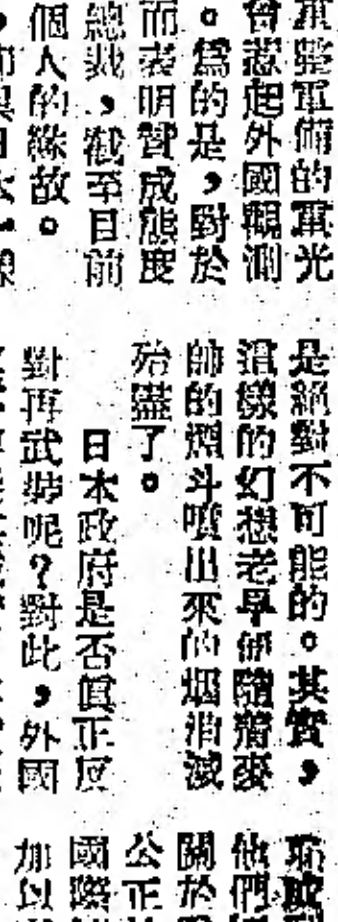 重整軍備的實光
會惹起外國觀測
。爲的是，對於
而表明贊成態度
總裁，截至目前
個人的緣故。
是絕對不可能的。其實，
這樣的幻想老早便隨著麥
帥的煙斗噴出來的烟消滅
殆盡了。
日本政府是否眞正反
對再武裝呢？對此，外國
他們
關於
公正
國際
加以